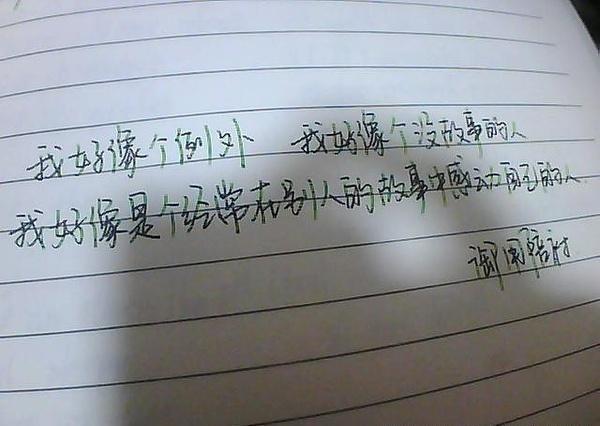 我好像个例外 我好像个没故事的人
我好像是个经常在别人的故事中感动自己的人